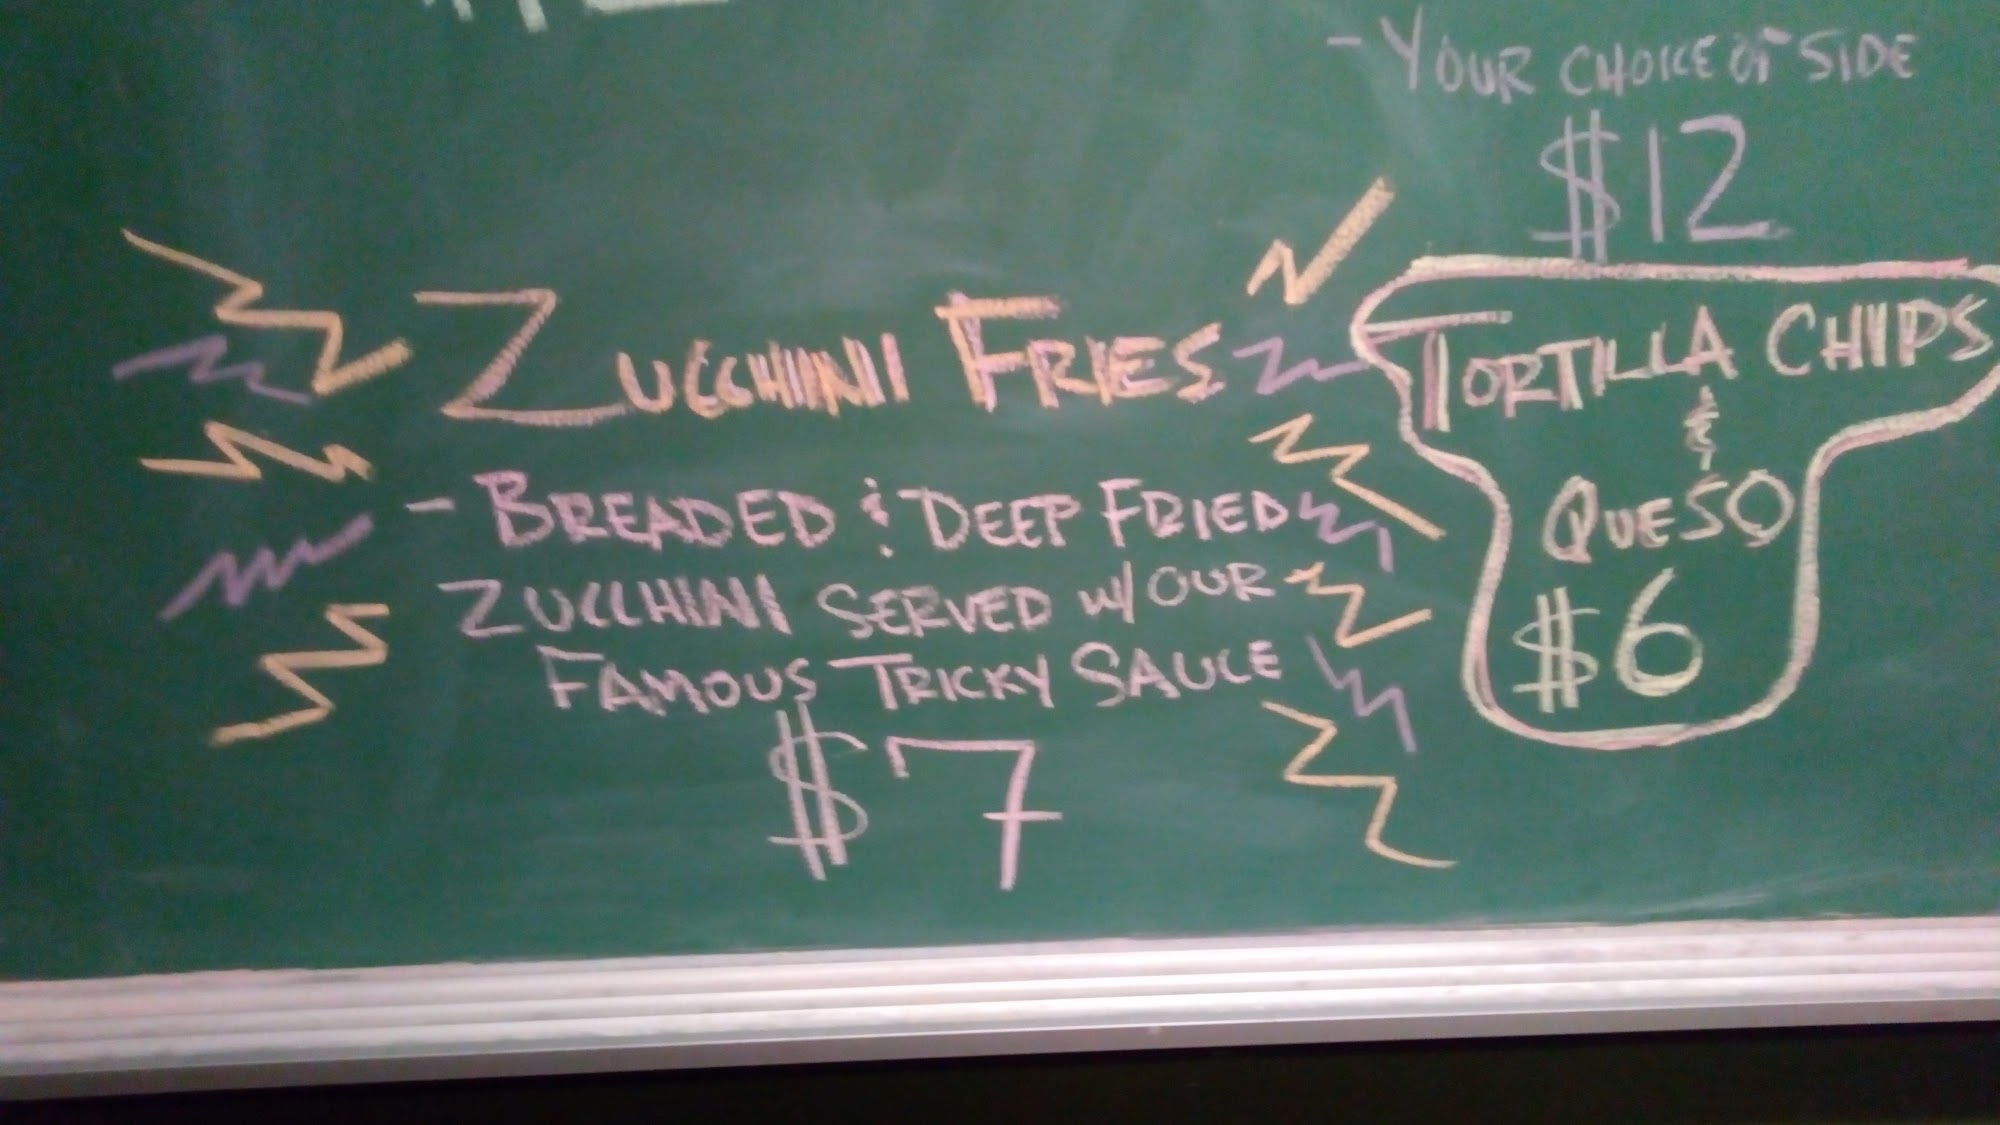 - YOUR CHOICE OF SIDE
$12
ZUCCHINI FRIES
- BREADED & DEEP FRIED
ZUCCHINI SERVED W/ OUR
FAMOUS TRICKY SAUCE
$7
TORTILLA CHIPS
&
QUESO
$6